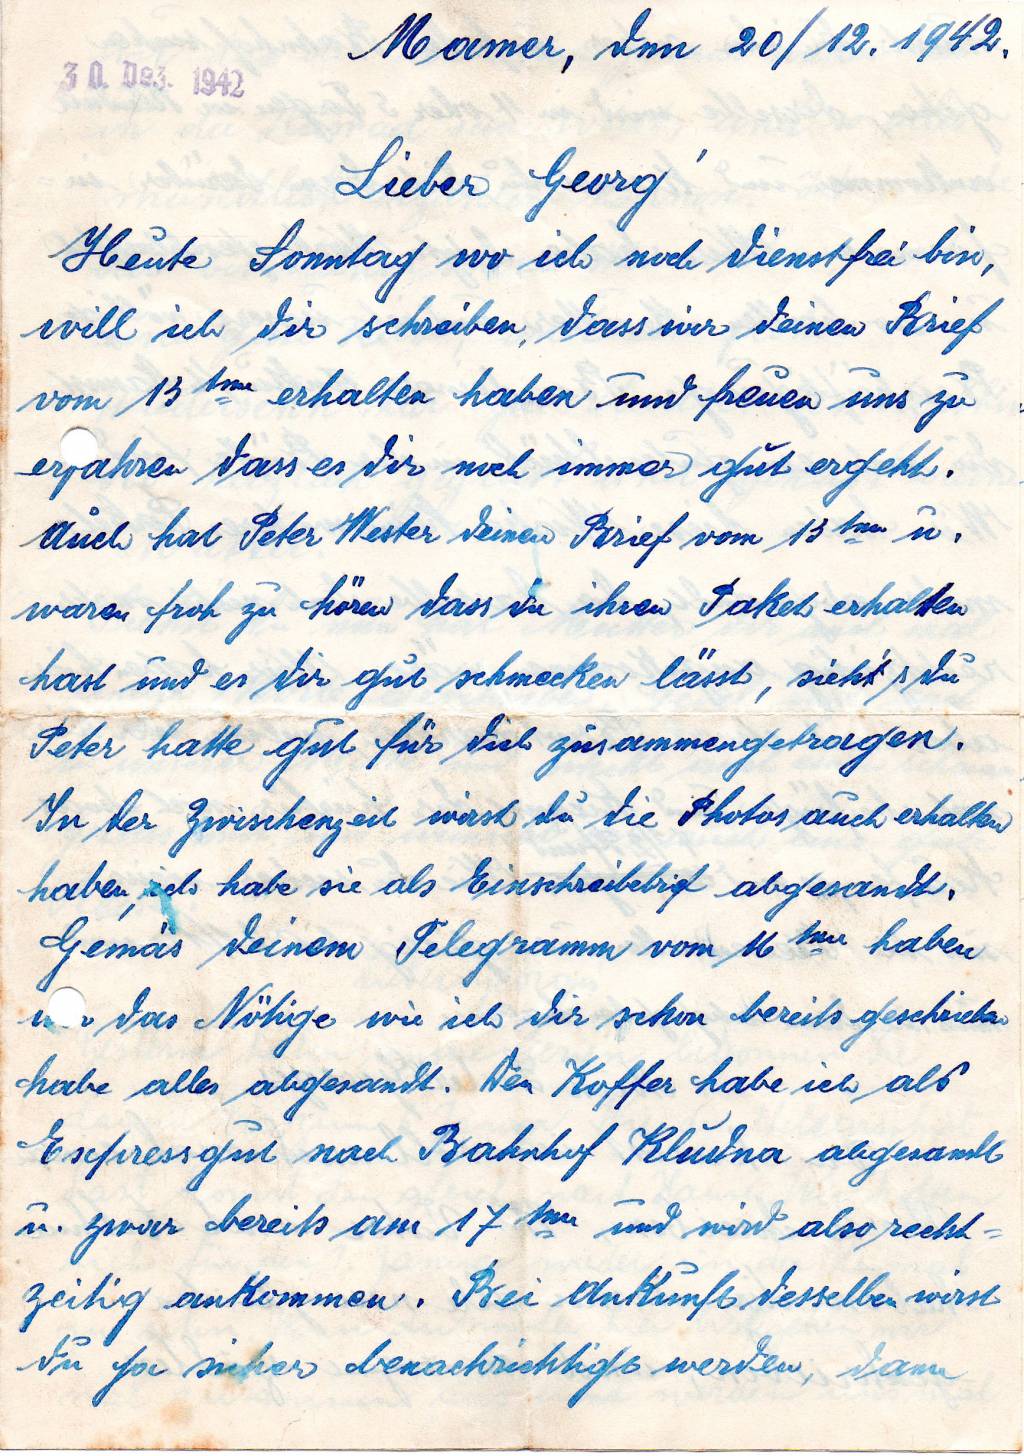 Mamer, den 20/12. 1942.
30. Dez. 1942
Lieber Georg
Heute Sonntag wo ich noch dienstfrei bin,
will ich dir schreiben, dass wir deinen Brief
vom 13 ten erhalten haben und freuen uns zu
erfahren dass es dir noch immer gut ergeht.
Auch hat Peter Wester deinen Brief vom 13 ten u.
waren froh zu hören dass du ihren Paket erhalten
hast und es dir gut schmecken lässt, siehst du
Peter hatte gut für dich zusammengetragen.
In der Zwischenzeit wirst du die Photos auch erhalten
haben, ich habe sie als Einschreibebrief abgesandt.
Gemäs deinem Telegramm vom 16 ten haben
wir das Nötige wie ich dir schon bereits geschrieben
habe alles abgesandt. Den Koffer habe ich als
Expressgut nach Bahnhof Kludna abgesandt
u. zwar bereits am 17 ten und wird also recht-
zeitig ankommen. Bei Ankunft desselben wirst
du ja sicher benachrichtigt werden, dann